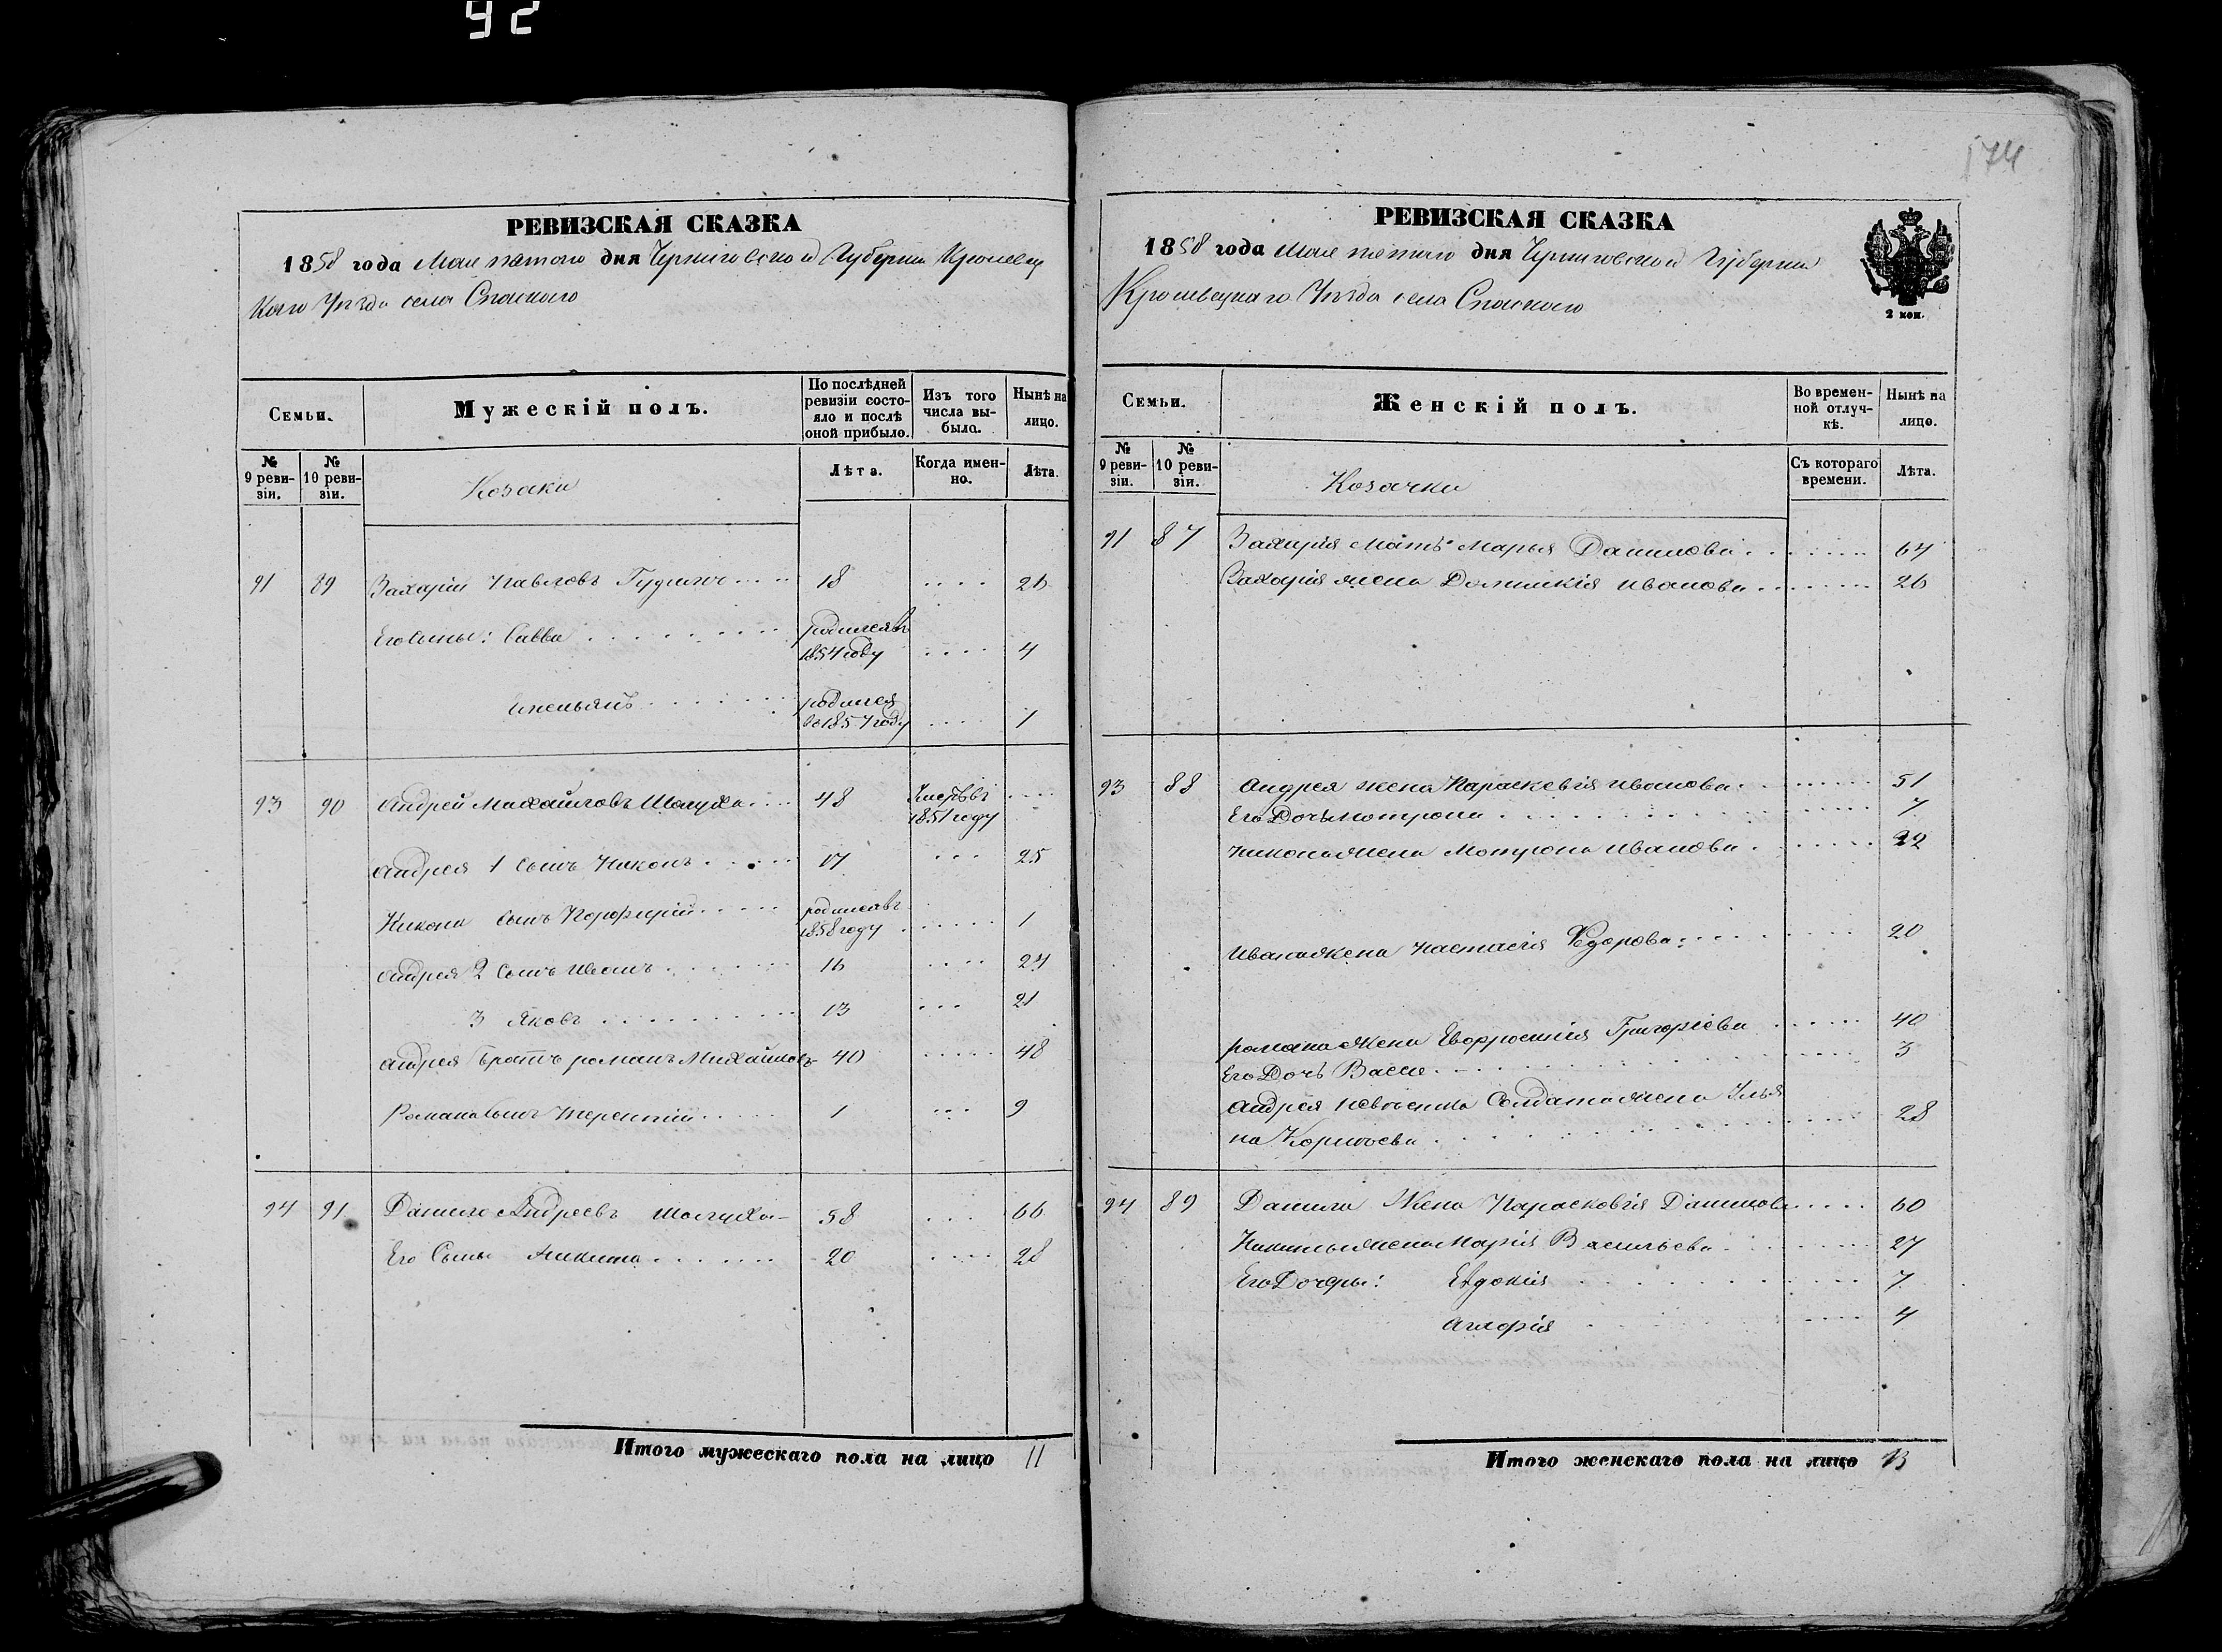 92
РЕВИЗСКАЯ СКАЗКА
1858 года Мая пятого дня Черниговской Губернии Кролевец
каго Уезда села Спаского
Семьи.
Мужескій полъ.
По послѣдней ревизіи состояло и послѣ оной прибыло.
Изъ того числа выбыло.
Нынѣ на лицо.
№ 9 ревизіи.
№ 10 ревизіи.
Козаки
Лѣта.
Когда именно.
Лѣта.
91 89 Захарій Павловъ 18 .... 26
Его сыны: Савва родился въ 1854 году .... 4
родился въ 1857 году .... 1
93 90 Андрей Михайловъ Шолудко 48 Умеръ въ 1851 году ....
Андрея 1 сынъ Никонъ 17 ... 25
Никона сынъ Порфирій родился въ 1858 году ..... 1
Андрея 2 сынъ Иванъ 16 .... 24
3 Яковъ 13 ... 21
Андрея братъ Романъ Михайловъ 40 ..... 48
Романа сынъ Терентій 1 ... 9
94 91 Данило Андреевъ 58 ... 66
Его Сынъ Никита 20 .... 28
Итого мужескаго пола на лицо 11
174
РЕВИЗСКАЯ СКАЗКА
1858 года Мая пятого дня Черниговской Губерніи
Кролевецкаго Уезда села Спаского
2 коп.
Семьи.
Женскій полъ.
Во временной отлучкѣ.
Нынѣ на лицо.
№ 9 ревизіи.
№ 10 ревизіи.
Козачки
Съ котораго времени.
Лѣта.
91 87 Захарія мать Марья Данилова 67
Захарія жена Домникія Иванова 26
93 88 Андрея жена Параскевія Иванова 51
Его Дочь Мотрона 7
Никона жена Мотрона Иванова 22
Ивана жена Настасія Федорова 20
Романа жена Евфросинія Григоріева 40
Его Дочь Васса 3
Андрея невѣстка Солдатка жена Улья
на 28
94 89 Данила Жена Парасковія Данилова 60
Никиты жена Марія Васильева 27
Его Дочеры: Евдокія 7
Агафія 4
Итого женскаго пола на лицо 13